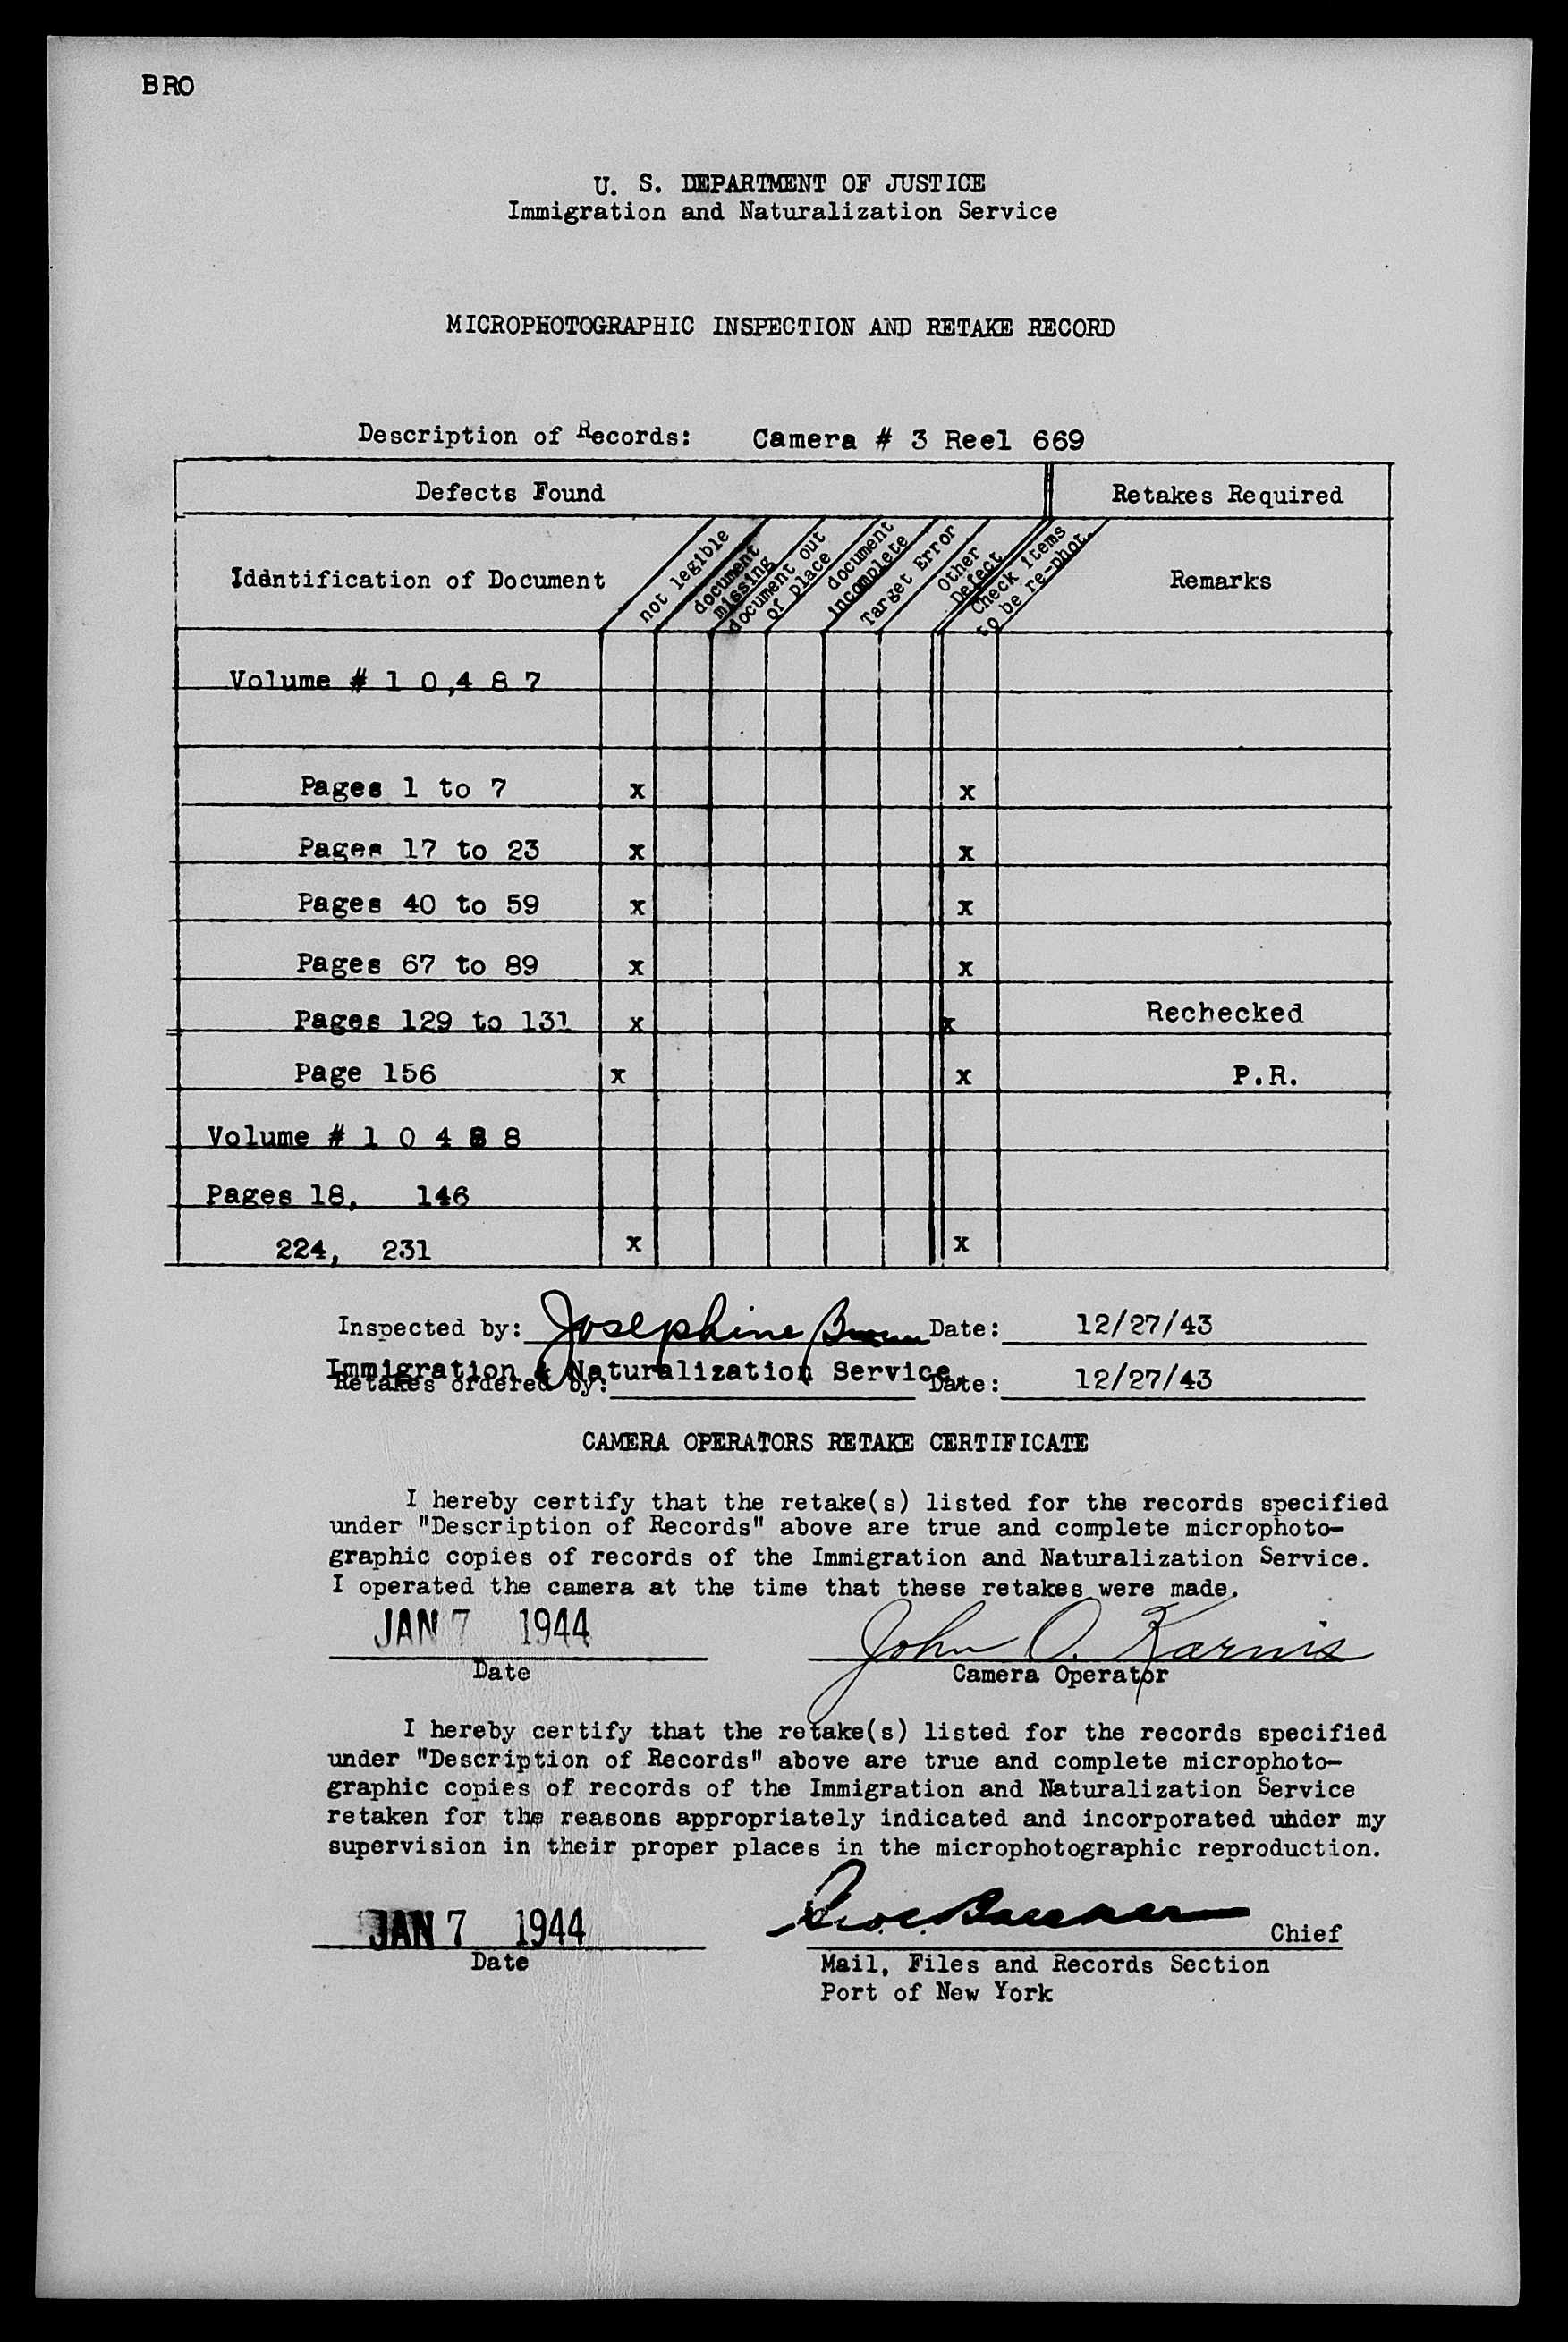 BRO
U. S. DEPARTMENT OF JUSTICE
Immigration and Naturalization Service
MICROPHOTOGRAPHIC INSPECTION AND RETAKE RECORD
Description of Records: Camera # 3 Reel 669
Defects Found Retakes Required
Identification of Document
not legible
document missing
document out of place
document incomplete
Target Error
Other Defect
Check items to be re-phot.
Remarks
Volume # 1 0 ,4 8 7
Pages 1 to 7 x x
Pages 17 to 23 x x
Pages 40 to 59 x x
Pages 67 to 89 x x
Pages 129 to 131 x x Rechecked
Page 156 x x P.R.
Volume # 1 0 4 8 8
Pages 18, 146
224, 231 x x
Inspected by: Josephine Brown Date: 12/27/43
Immigration & Naturalization Service,
Retakes ordered by: Date: 12/27/43
CAMERA OPERATORS RETAKE CERTIFICATE
I hereby certify that the retake(s) listed for the records specified
under "Description of Records" above are true and complete microphoto-
graphic copies of records of the Immigration and Naturalization Service.
I operated the camera at the time that these retakes were made.
JAN 7 1944 John O. Karnis
Date Camera Operator
I hereby certify that the retake(s) listed for the records specified
under "Description of Records" above are true and complete microphoto-
graphic copies of records of the Immigration and Naturalization Service
retaken for the reasons appropriately indicated and incorporated under my
supervision in their proper places in the microphotographic reproduction.
JAN 7 1944 Chief
Date Mail, Files and Records Section
Port of New York